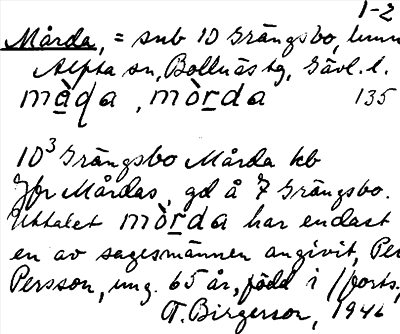 1-2
Mårda, = sub 10 Grängsbo,
Alfta sn, Bollnäs tg, Gävl. l.
mạ̀qa, mòrda 135
10³ Grängsbo Mårda kb
Jfr Mårdas, gd å 7 Grängsbo.
Uttalet mòrda har endast
en av sagesmännen angivit, Per
Persson, ung. 65 år, född i /forts.,
T. Birgerson, 1946